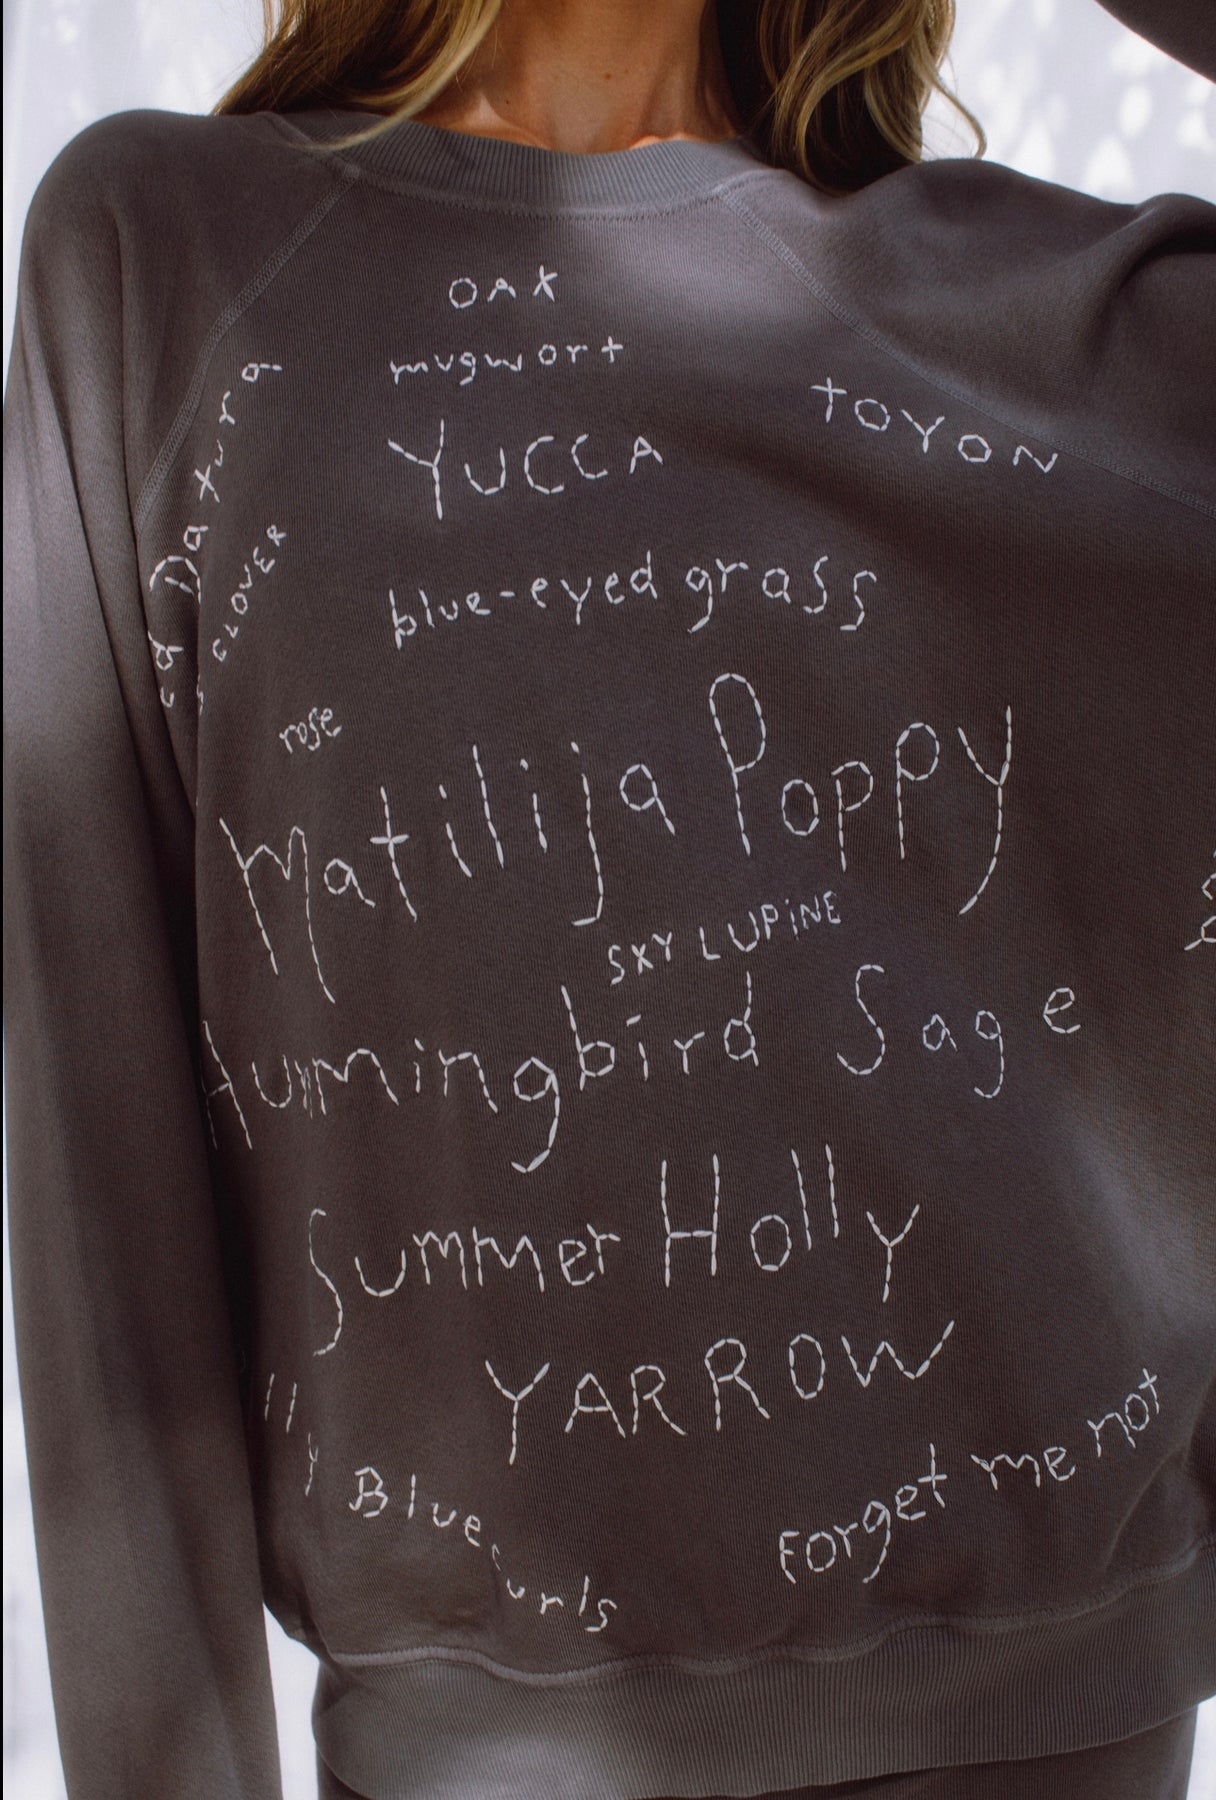 OAK
mugwort
TOYON
Datura
YUCCA
CLOVER
blue-eyed grass
rose
Matilija Poppy
SKY LUPINE
Hummingbird Sage
Summer Holly
YARROW
lly Blue curls
Forget me not